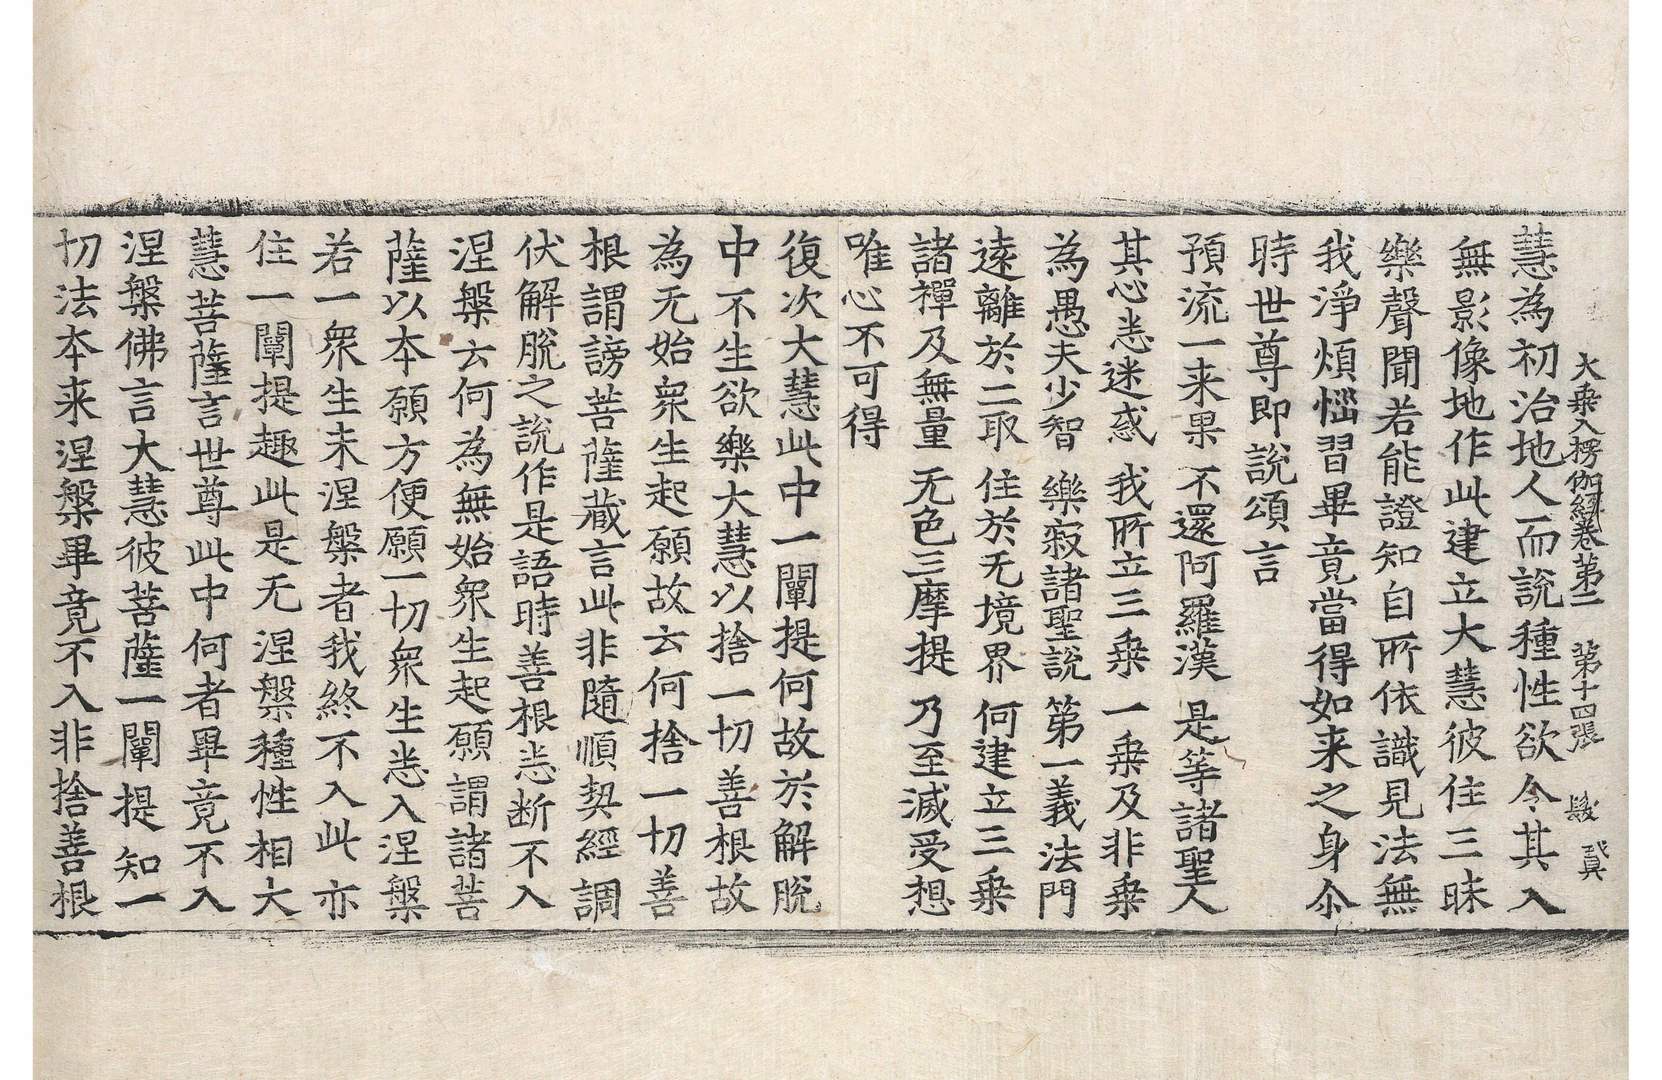 大乘入楞伽經卷第二 第十四張 髮 眞
慧為初治地人而說種性欲令其入
無影像地作此建立大慧彼住三昧
樂聲聞若能證知自所依識見法無
我淨煩惱習畢竟當得如来之身尒
時世尊即說頌言
預流一来果 不還阿羅漢 是等諸聖人
其心恙迷惑 我所立三乗 一乗及非乗
為愚夫少智 樂寂諸聖說 第一義法門
遠離於二取 住於无境界 何建立三乗
諸禪及無量 无色三摩提 乃至滅受想
唯心不可得
復次大慧此中一闡提何故於解脫
中不生欲樂大慧以捨一切善根故
為无始衆生起願故云何捨一切善
根謂謗菩薩藏言此非隨順契經調
伏解脫之說作是語時善根悉断不入
涅槃云何為無始衆生起願謂諸菩
薩以本願方便願一切衆生悉入涅槃
若一衆生未涅槃者我終不入此亦
住一闡提趣此是无涅槃種性相大
慧菩薩言世尊此中何者畢竟不入
涅槃佛言大慧彼菩薩一闡提知一
切法本来涅槃畢竟不入非捨善根